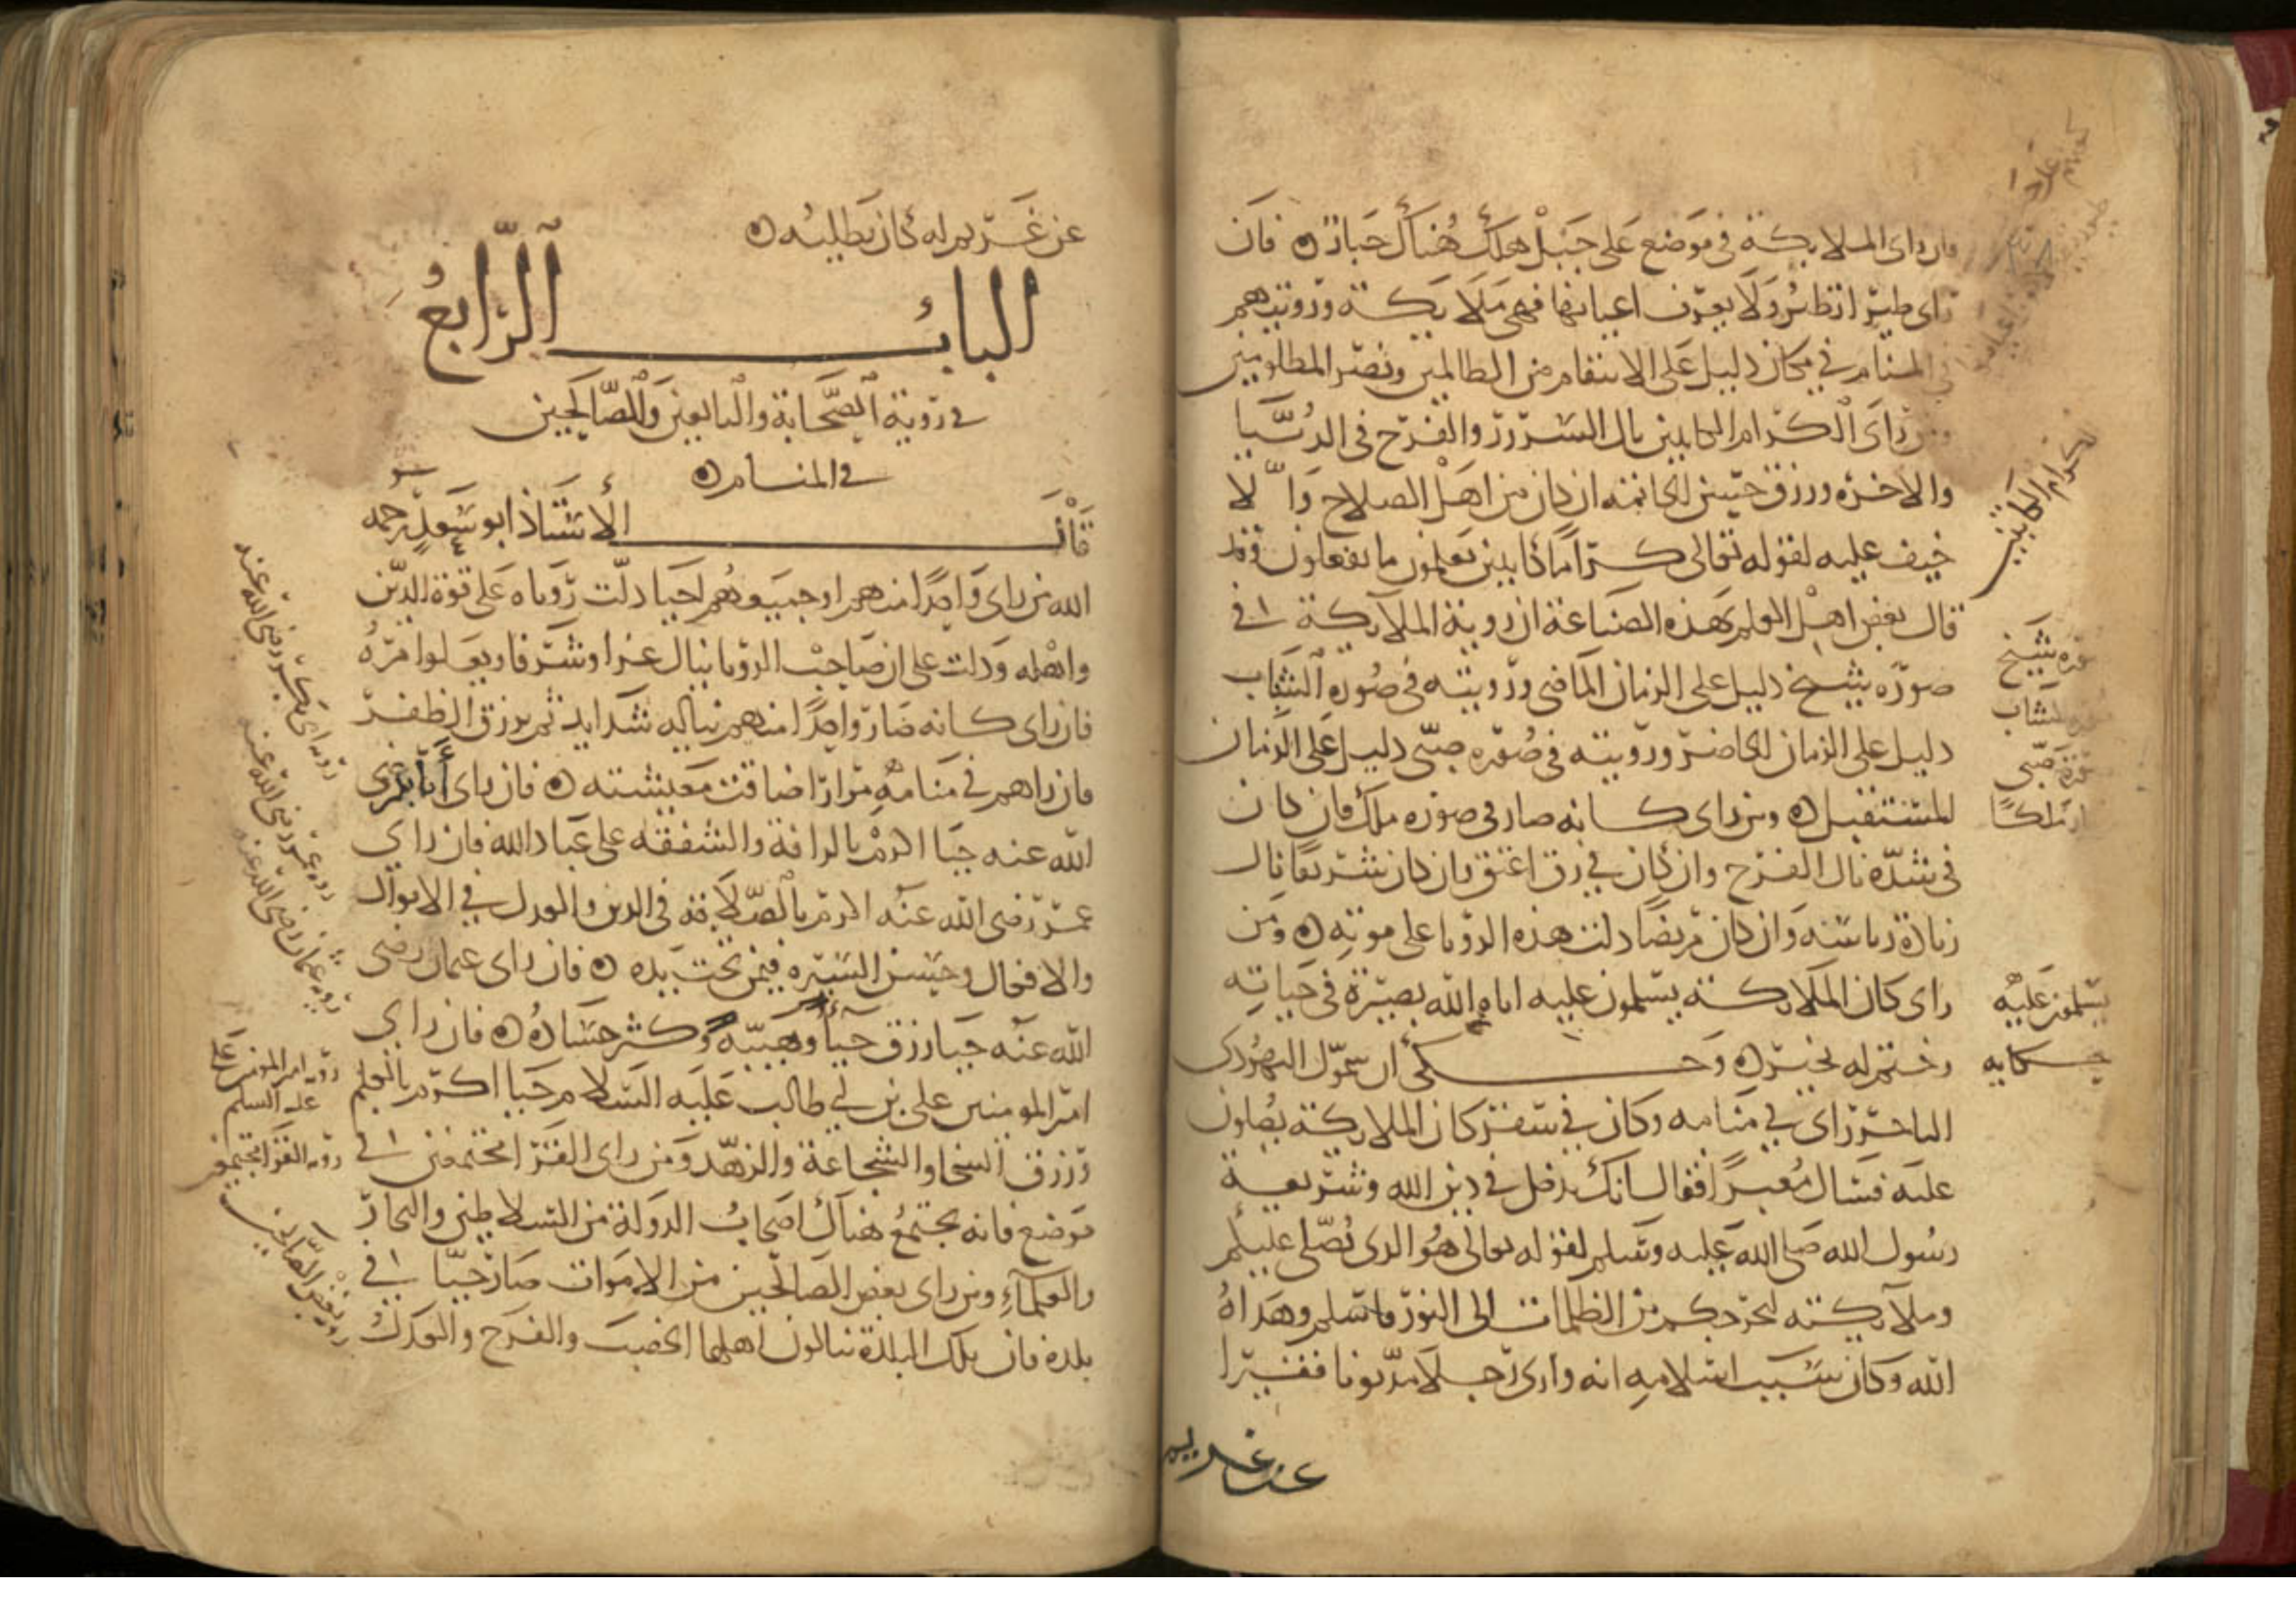 وان راى الملايكة في موضع على جبل هلك هناك جبار ه فان
راى طيرا تطير ولا يعرف اعيانها فهي ملايكة ورويتهم
في المنام في مكان دليل على الانتقام من الظالمين ونصر المظلومين
ومن راى الكرام الكاتبين نال السرور والفرح في الدنيا
والاخرة ورزق حسن الخاتمة ان كان من اهل الصلاح والا
خيف عليه لقوله تعالى كراما كاتبين يعلمون ما تفعلون وقد
قال بعض اهل العلم بهذه الصناعة ان روية الملايكة في
صورة شيخ دليل على الزمان الماضي ورويته في صورة الشاب
دليل على الزمان الحاضر ورويته في صورة صبي دليل على الزمان
المستقبل ه ومن راى كانه صار في صورة ملك فان كان
في شدة نال الفرج وان كان في رق اعتق وان كان شريفا نال
زيادة رياسته وان كان مريضا دلت هذه الرويا على موته ه ومن
راى كان الملايكة يسلمون عليه اتاه الله بصيرة في حياته
وختم له بخير ه وحكى ان سمول اليهودي
التاجر راى في منامه وكان في سفر كان الملايكة يصلون
عليه فسال معبرا فقال انك تدخل في دين الله وشريعة
رسول الله صلى الله عليه وسلم لقوله تعالى هو الذي يصلي عليكم
وملايكته ليخرجكم من الظلمات الى النور فاسلم وهداه
الله وكان سبب اسلامه انه وارى رجلا مديونا فقيرا
الكرام الكاتبين
صورة شيخ
صورة الشاب
صورة صبي
يسلمون عليه
حكايه
عن غريم
عن غريم له كان يطلبه ه
الباب الرابع
في روية الصحابة والتابعين والصالحين
في المنام ه
قال الاستاذ ابو سعد رحمه
الله من راى واحدا منهم او جميعهم احيا دلت روياه على قوة الدين
واهله ودلت على ان صاحب الرويا ينال عزا وشرفا ويعلوا امره
فان راى كانه صار واحدا منهم يناله شدايد ثم يرزق الظفر
فان راهم في منامه مرارا ضاقت معيشته ه فان راى ابا بكر رضى
الله عنه حيا اكرم بالرافة والشفقة على عباد الله فان راي
عمر رضى الله عنه اكرم بالصلابة في الدين والعدل في الاقوال
والافعال وحسن السيرة فيمن تحت يده ه فان راى عثمان رضى
الله عنه حيا رزق حياء وهيبة وكثر حساده ه فان راي
امير المومنين علي بن ابي طالب عليه السلام حيا اكرم بالعلم
ورزق السخا والشجاعة والزهد ومن راى القرا مجتمعين في
موضع فانه يجتمع هناك اصحاب الدولة من السلاطين والتجار
والعلماء ومن راى بعض الصالحين من الاموات صار حيا في
بلدة فان تلك البلدة ينالون اهلها الخصب والفرج والعدل
رويه ابي بكر رضى الله عنه
رويه عمر رضى الله عنه
رويه عثمان رضى الله عنه
رويه امير المومنين علي
عليه السلم
رويه القرا مجتمعين
رويه بعض الصالحين